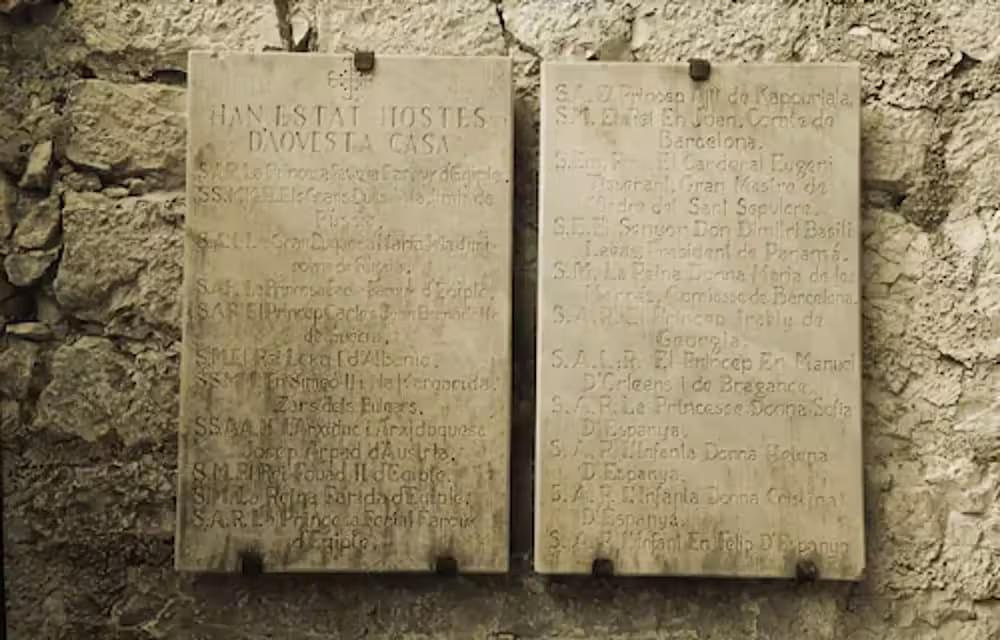 HAN ESTAT HOSTES
D'AQVESTA CASA
S.A.R. La Princesa Fawzia Farouk d'Egipte.
SS.MM.II. Els Grans Ducs Vladimir de
Rússia.
S.A.I. La Gran Duquesa Maria
de Rússia.
S.A.R. La Princesa Farouk d'Egipte.
S.A.R. El Príncep Carles Joan Bernadotte
de Suècia.
S.M. El Rei Leka I d'Albania.
SS.MM. En Simeó II i Na Margarida.
Zars dels Bulgars.
SS.AA.II. l'Arxiduc i Arxiduquesa
Josep Arpad d'Austria.
S.M. El Rei Fouad II d'Egipte.
S.M. La Reina Farida d'Egipte.
S.A.R. La Princesa Ferial Farouk
d'Egipte.
S.A. El Princep Ajit de Kapourtala.
S.M. El Rei En Joan, Comte de
Barcelona.
S.Em. Rm. El Cardenal Eugeni
Tisserant, Gran Mestre de
l'Ordre del Sant Sepulcre.
S.E. El Senyor Don Dimitri Basili
Lakas, President de Panamá.
S.M. La Reina Donna Maria de les
Mercès, Comtesse de Barcelona.
S.A.R. El Princep Irakly de
Georgia.
S.A.I.R. El Princep En Manuel
D'Orleans i de Bragance.
S.A.R. La Princesse Donna Sofia
D'Espanya.
S.A.R. l'Infanta Donna Helena
D'Espanya.
S.A.R. l'Infanta Donna Cristina
D'Espanya.
S.A.R. l'Infant En Felip D'Espanya